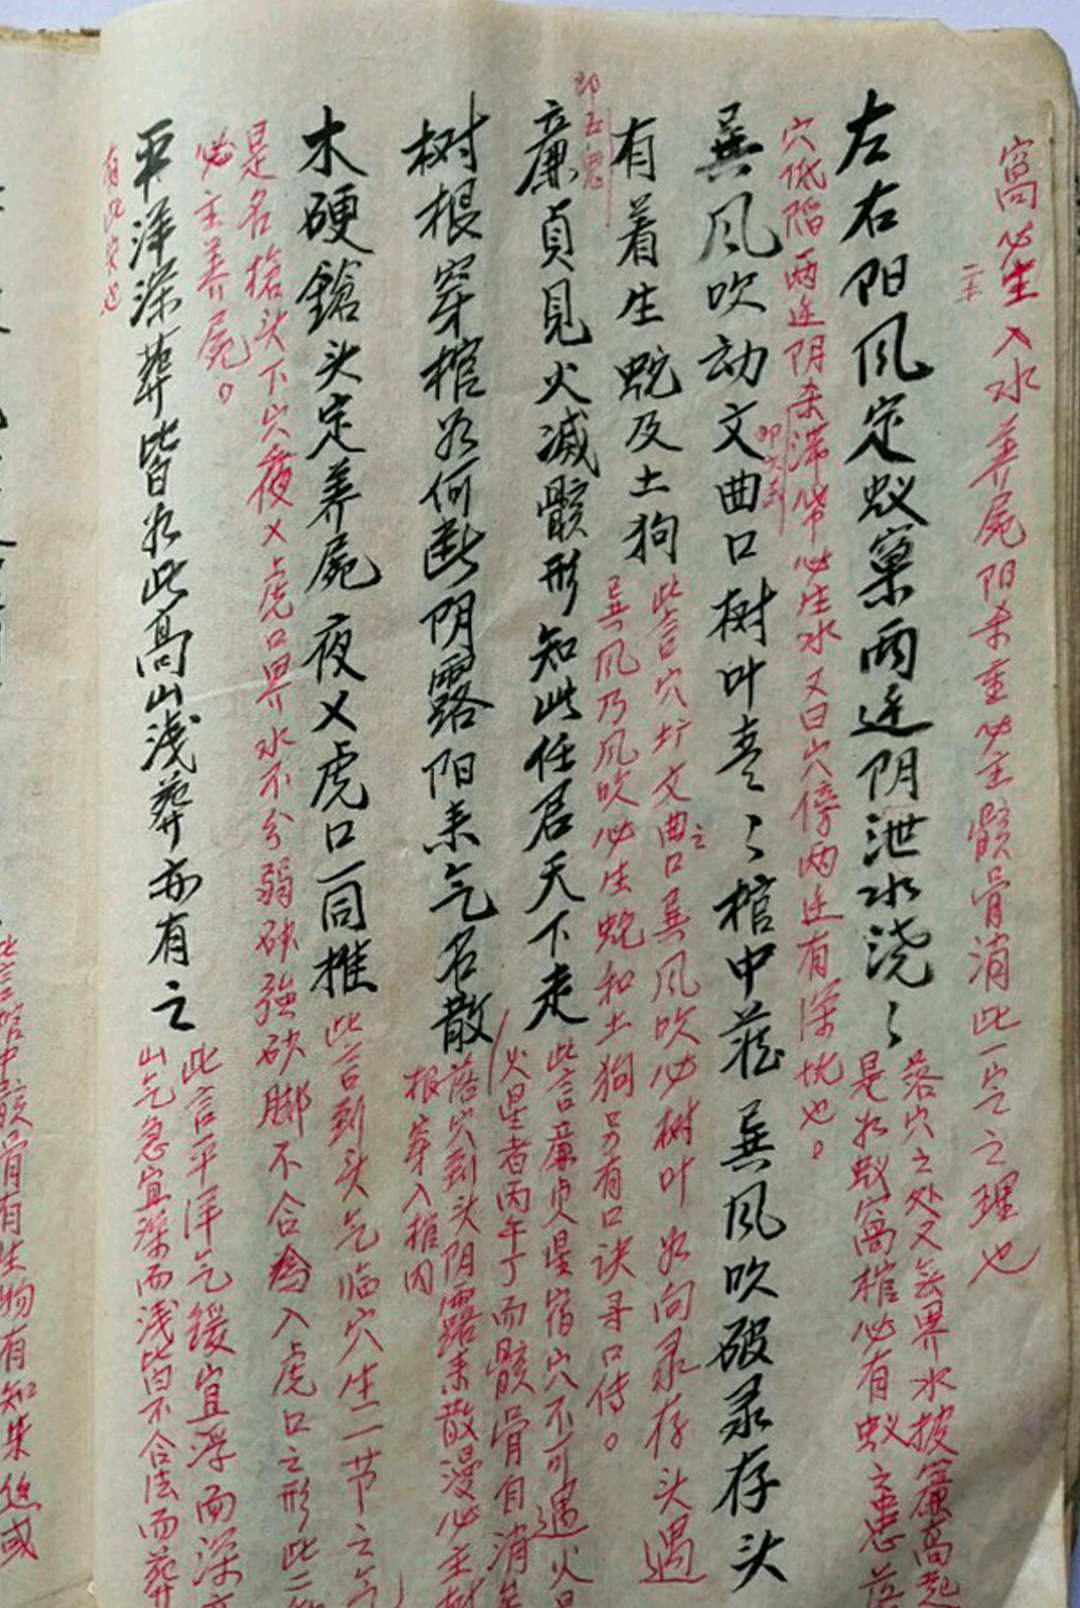 窩必生入水养屍阳杀重必主骸骨消此一穴之理也
左右阳风定蚁窠两边阴泄水浇〻
落穴之处又无界水披簾高起
是为蚁窩棺必有蚁之患
穴低陷两边阴杀滞带必生水又曰穴傍两边有深坑也。
巽风吹动文曲口树叶㐂〻棺中藏巽风吹破录存头
有着生蛇及土狗
此言穴圹文曲之口巽风吹必树叶为向录存头遇
巽风乃风吹必生蛇和土狗另有口诀寻口传。
廉貞見火滅骸形知此任君天下走
此言廉贞星宿穴不可遇火
火星者丙午丁而骸骨自消
树根穿棺为何断阴露阳来气名散
落穴到头阴露来散漫必主树
根穿入棺内
木硬鎗头定养屍夜乂虎口一同推
此言到头气临穴生一节之气
是名鎗头下穴夜乂虎口界水不分弱砂强砂脚不合为入虎口之形此二
必主养屍。
平洋深葬皆为此高山浅葬亦有之
此言平洋气缓宜浮而深
山气急宜深而浅皆不合法而葬
有此穴也
此言棺中骸骨有生物有知朱丝或